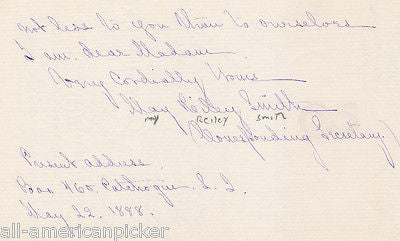 not less to you than to ourselves
I am, dear Madam
Very Cordially Yours
May Riley Smith
may REILEY smith
(Corresponding Secretary.)
Present address.
Box 460. Patchogue. L. I.
May 22. 1888.
© all-americanpicker